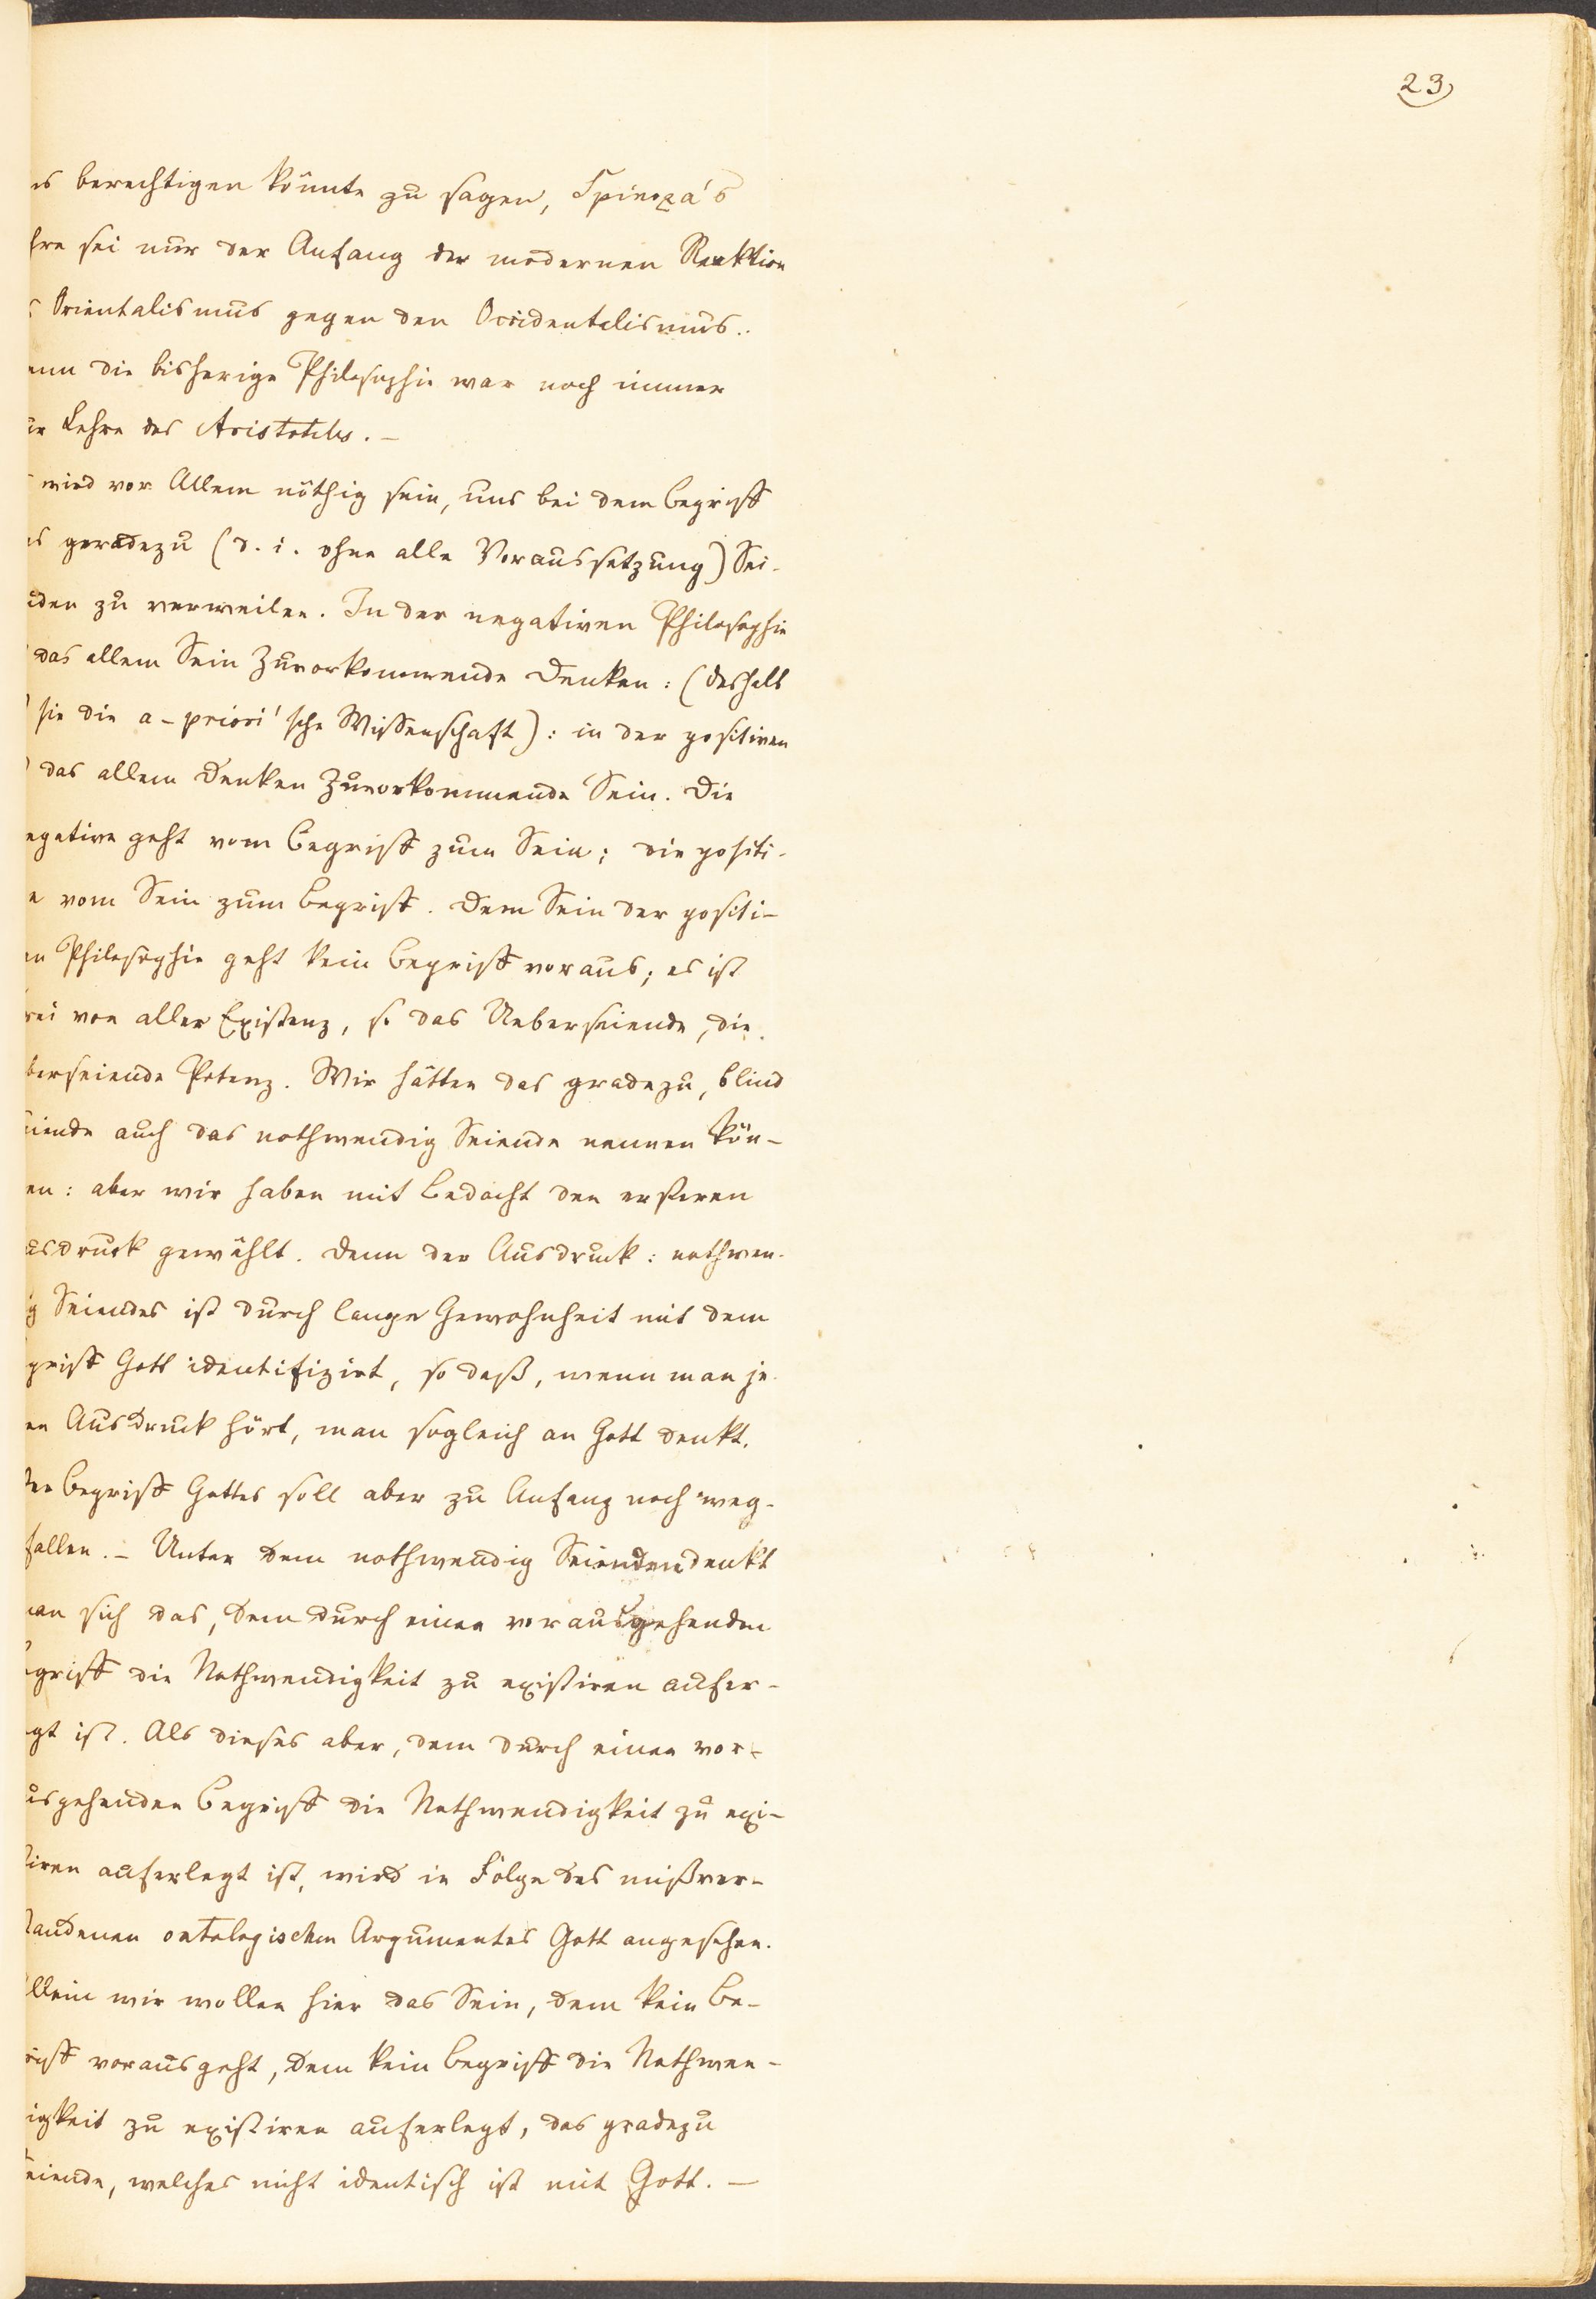 23
es berechtigen könnte zu sagen, Spinoza's
hre sei nur der Anfang der modernen Reaktion
s Orientalismus gegen den Occidentalismus.
enn die bisherige Philosophie war noch immer
ur Lehre des Aristoteles. –
wird vor Allem nöthig sein, uns bei dem Begriff
es geradezu (d. i. ohne alle Voraussetzung) Sei-
nden zu verweilen. In der negativen Philosophie
das allem Sein Zuvorkommende Denken: (deshalb
sie die a-priori'sche Wissenschaft): in der positiven
das allem Denken Zuvorkommende Sein. Die
egative geht vom Begriff zum Sein; die positi-
e vom Sein zum Begriff. Dem Sein der positi-
en Philosophie geht kein Begriff voraus; es ist
rei von aller Existenz, so das Ueberseiende, die
berseiende Potenz. Wir hätten das gradezu, blind
eiende auch das nothwendig Seiende nennen kön-
en: aber wir haben mit Bedacht den ersteren
usdruck gewählt. Denn der Ausdruck: nothwen-
ig Seiendes ist durch lange Gewohnheit mit dem
griff Gott identifizirt, so daß, wenn man je-
en Ausdruck hört, man sogleich an Gott denkt.
Der Begriff Gottes soll aber zu Anfang noch weg-
fallen. – Unter dem nothwendig Seienden denkt
man sich das, dem durch einen vorausgehenden
egriff die Nothwendigkeit zu existiren aufer-
egt ist. Als dieses aber, dem durch einen vor-
usgehenden Begriff die Nothwendigkeit zu exi-
tiren auferlegt ist, wird in Folge des mißver-
tandenen ontologischen Argumentes Gott angesehen.
llein wir wollen hier das Sein, dem kein Be-
riff vorausgeht, dem kein Begriff die Nothwen-
igkeit zu existiren auferlegt, das gradezu
eiende, welches nicht identisch ist mit Gott. –